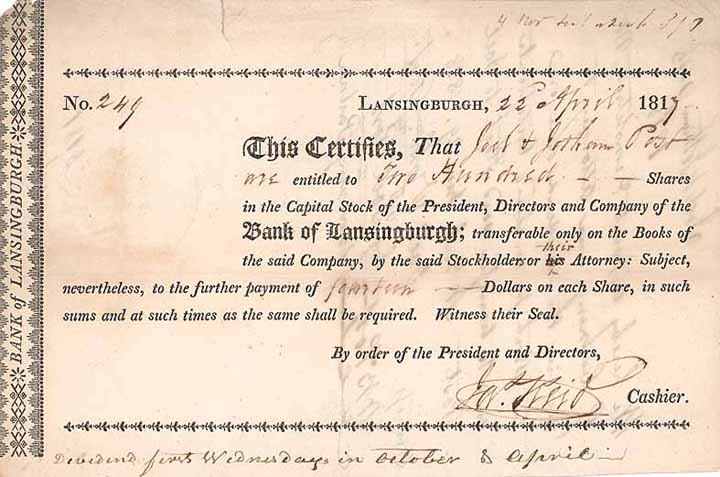 BANK of LANSINGBURGH
4
No. 249 LANSINGBURGH, 22d April 1817
This Certifies, That Joel & Jotham Post
are entitled to Two Hundred — — Shares
in the Capital Stock of the President, Directors and Company of the
Bank of Lansingburgh; transferable only on the Books of
the said Company, by the said Stockholders or his their Attorney: Subject,
nevertheless, to the further payment of fourteen — Dollars on each Share, in such
sums and at such times as the same shall be required. Witness their Seal.
By order of the President and Directors,
Jas. Reid Cashier.
Dividend first Wednesdays in October & April —